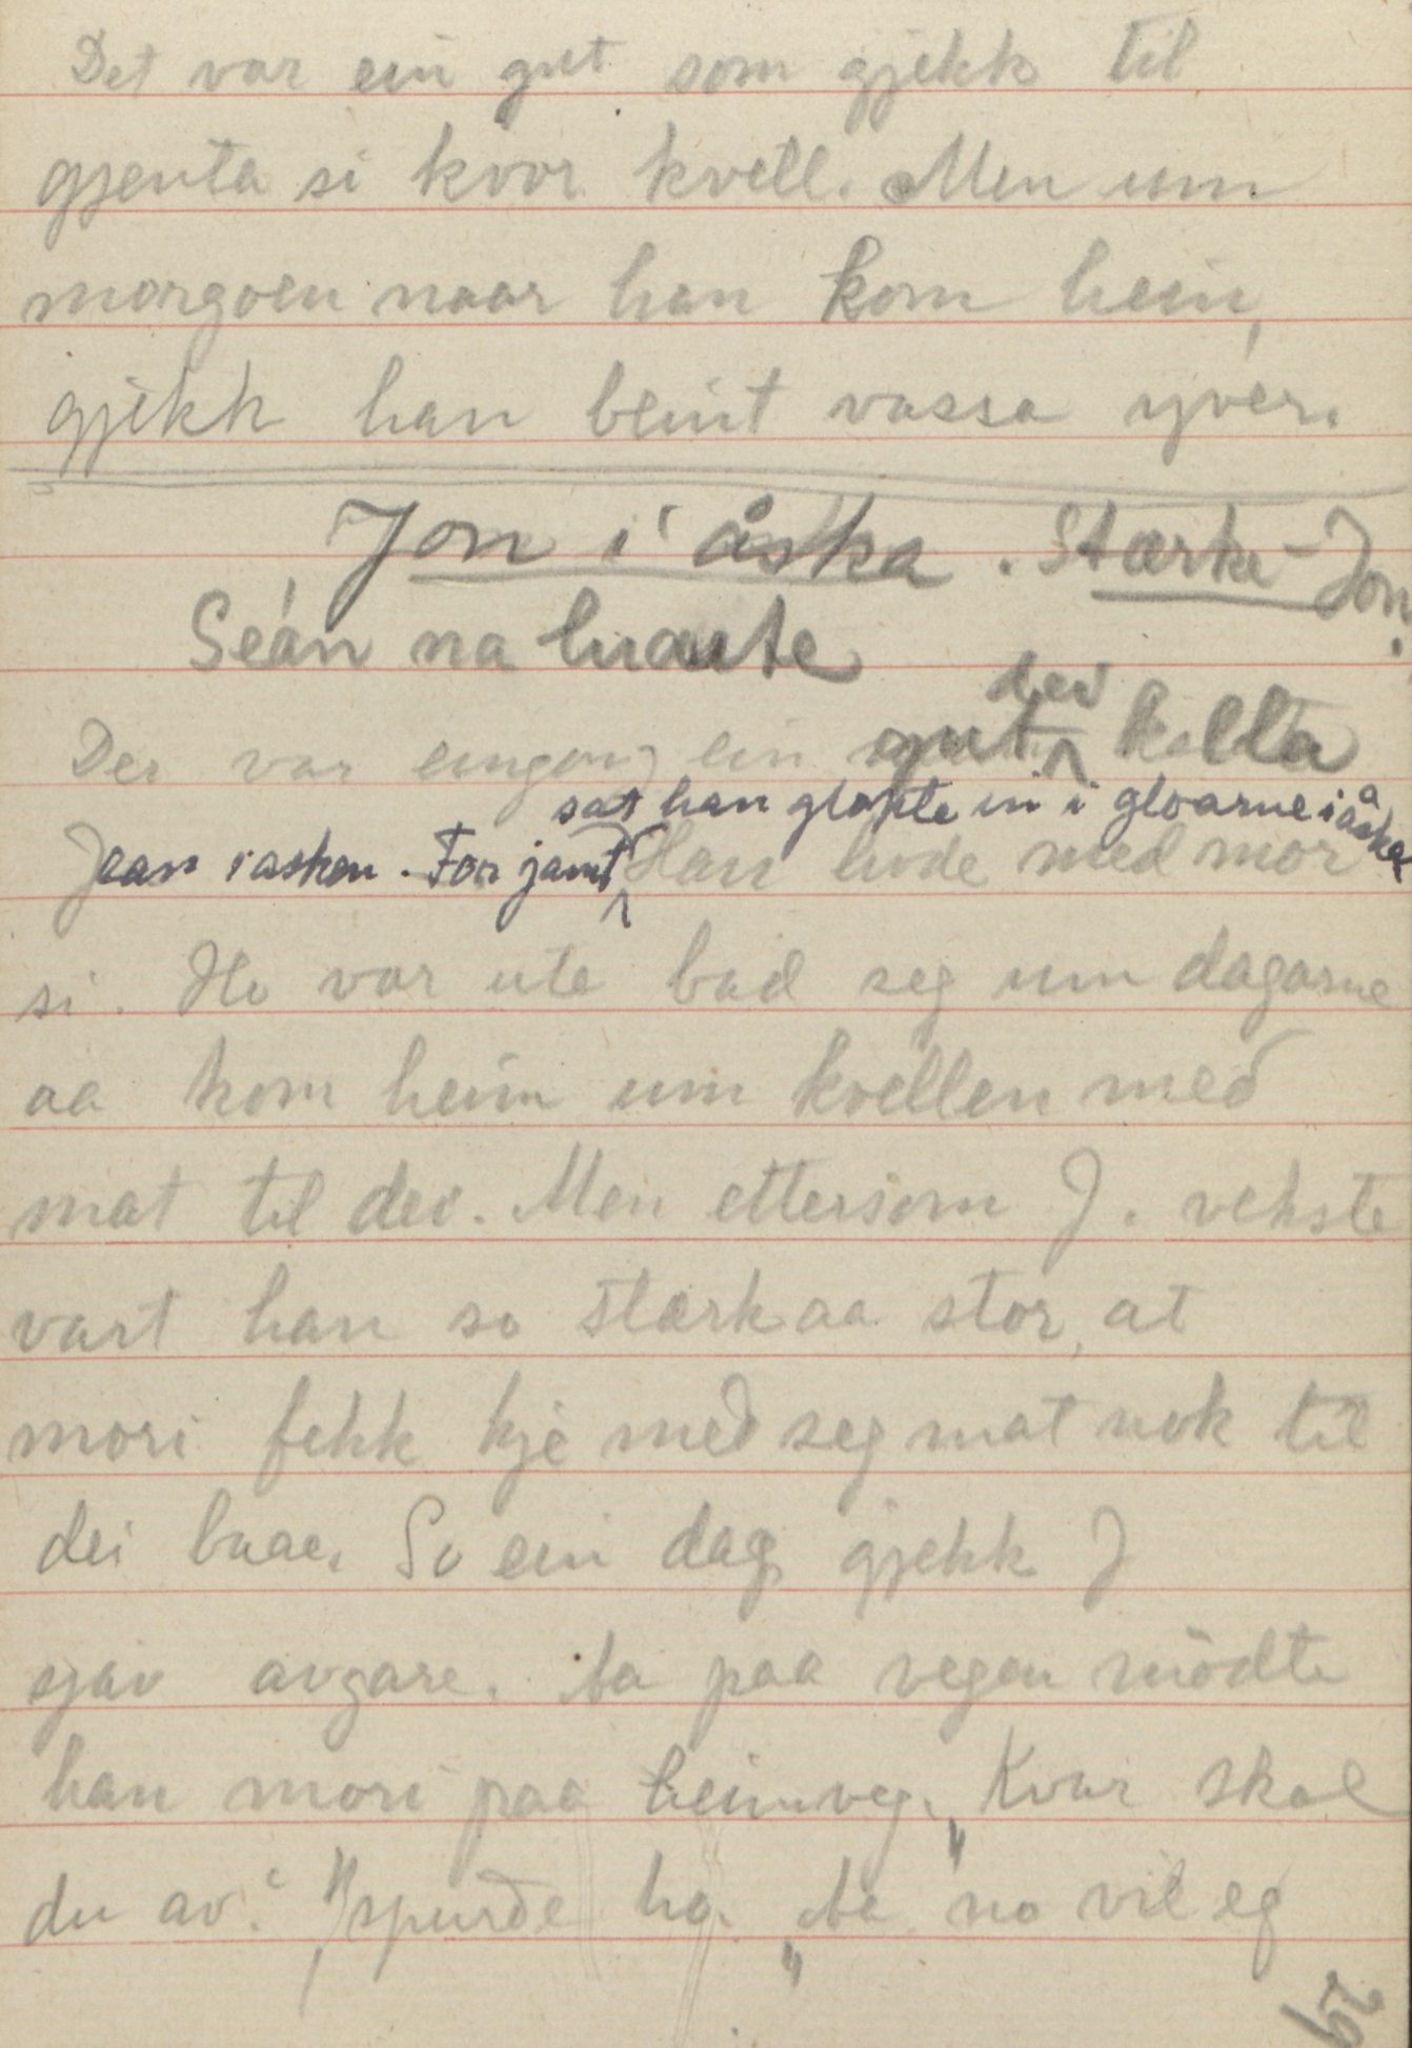 Det var ein gut som gjekk til
gjenta si kvor kvell. Men um
morgoen naar han kom heim,
gjekk han beint vassa yver.
Jon i åska. Stærke-Jon.
Seán na luaite
Der var eingong ein gut dei kalla
sat han glopte in i gloarne i åska
Jean i asken. For jamt Han livde med mor
si. Ho var ute bad seg um dagarne
aa kom heim um kvellen med
mat til dei. Men ettersom J. vekste
vart han so stærk aa stor, at
mori fekk kje med seg mat nok til
dei baae. So ein dag gjekk J
sjøv avgare. Aa paa vegen mødte
han mori paa heimveg. „Kvar skal
du av?" spurde ho. „Aa no vil eg
29